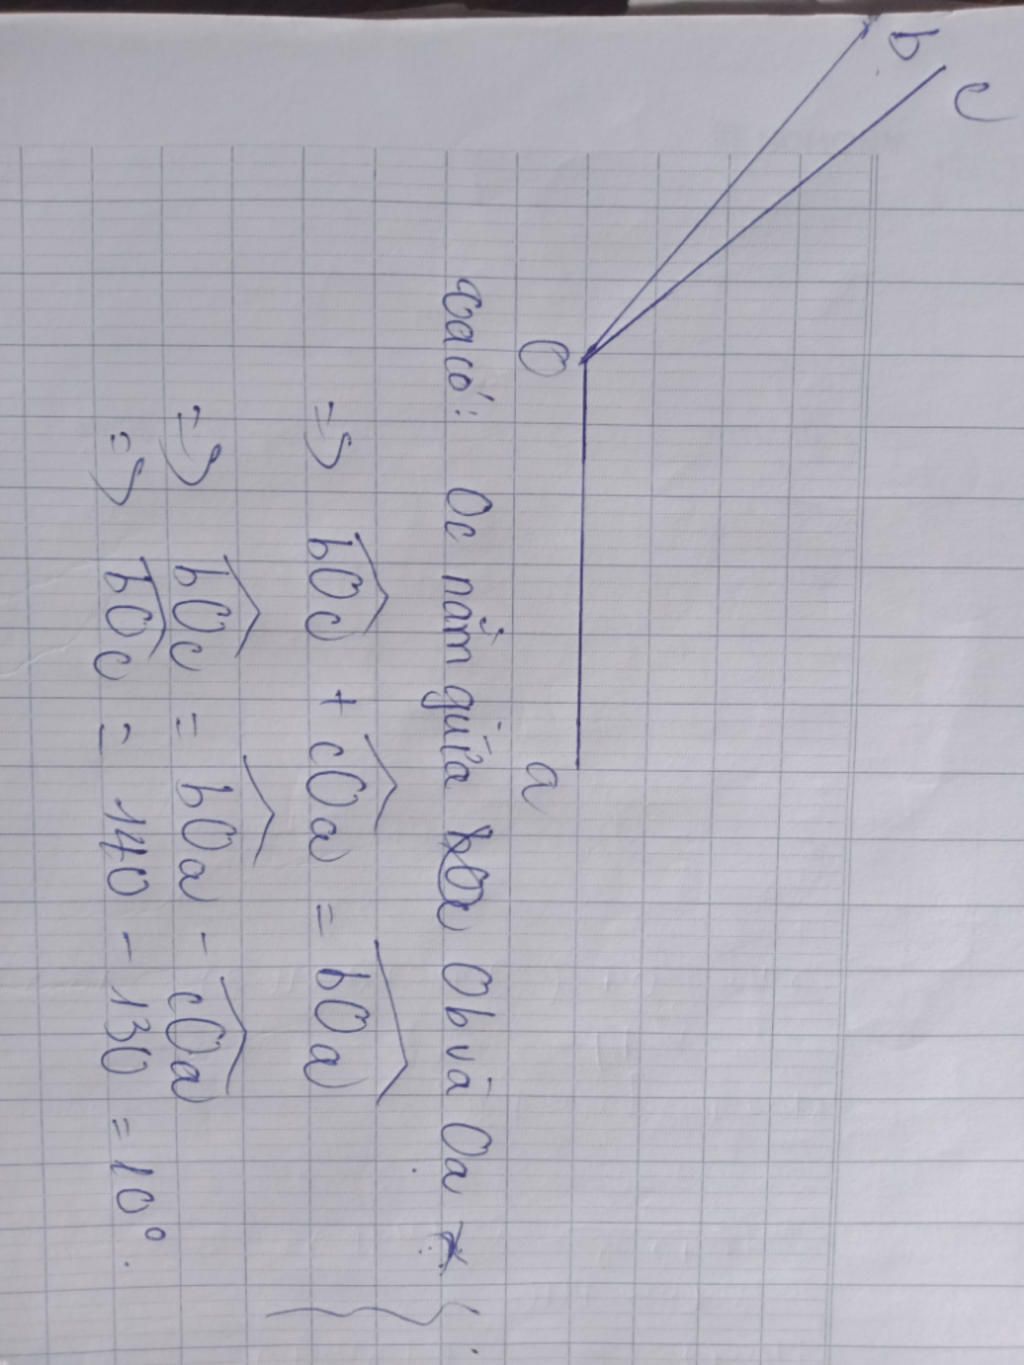 b
c
O
a
Ta có: Oc nằm giữa Ob và Oa
=> bOc + cOa = bOa
=> bOc = bOa - cOa
=> bOc = 140 - 130 = 10°.